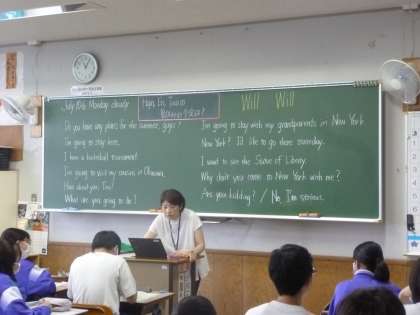 July 10th Monday cloudy
Hajin, Eri, Tina
Will Will
Do you have any plans for the summer, guys?
I'm going to stay here.
I have a basketball tournament.
I'm going to visit my cousins in Okinawa.
How about you, Tina?
What are you going to do?
I'm going to stay with my grandparents in New York.
New York? I'd like to go there someday.
I want to see the Statue of Liberty.
Why don't you come to New York with me?
Are you kidding? / No, I'm serious.